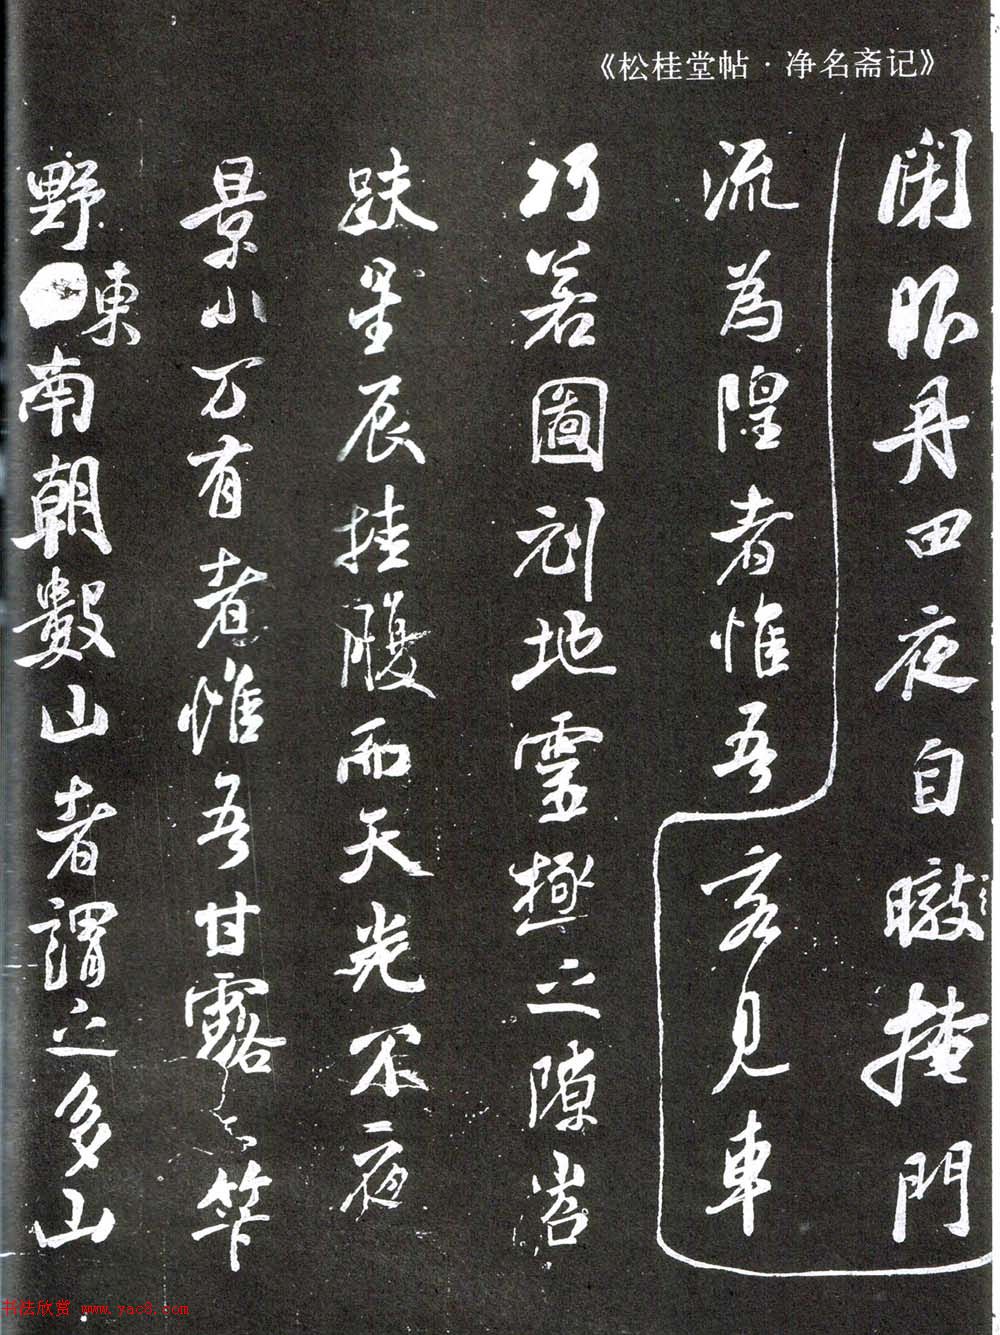 《松桂堂帖·净名斋记》
丹田夜自暾掩門
流為隍者惟吾客見車
巧若圖刻地靈極之隙岩
趺星辰挂腹而天光不夜
景小万有者惟吾甘露
野東南朝數山者謂之多山
书法欣赏 www.yac8.com